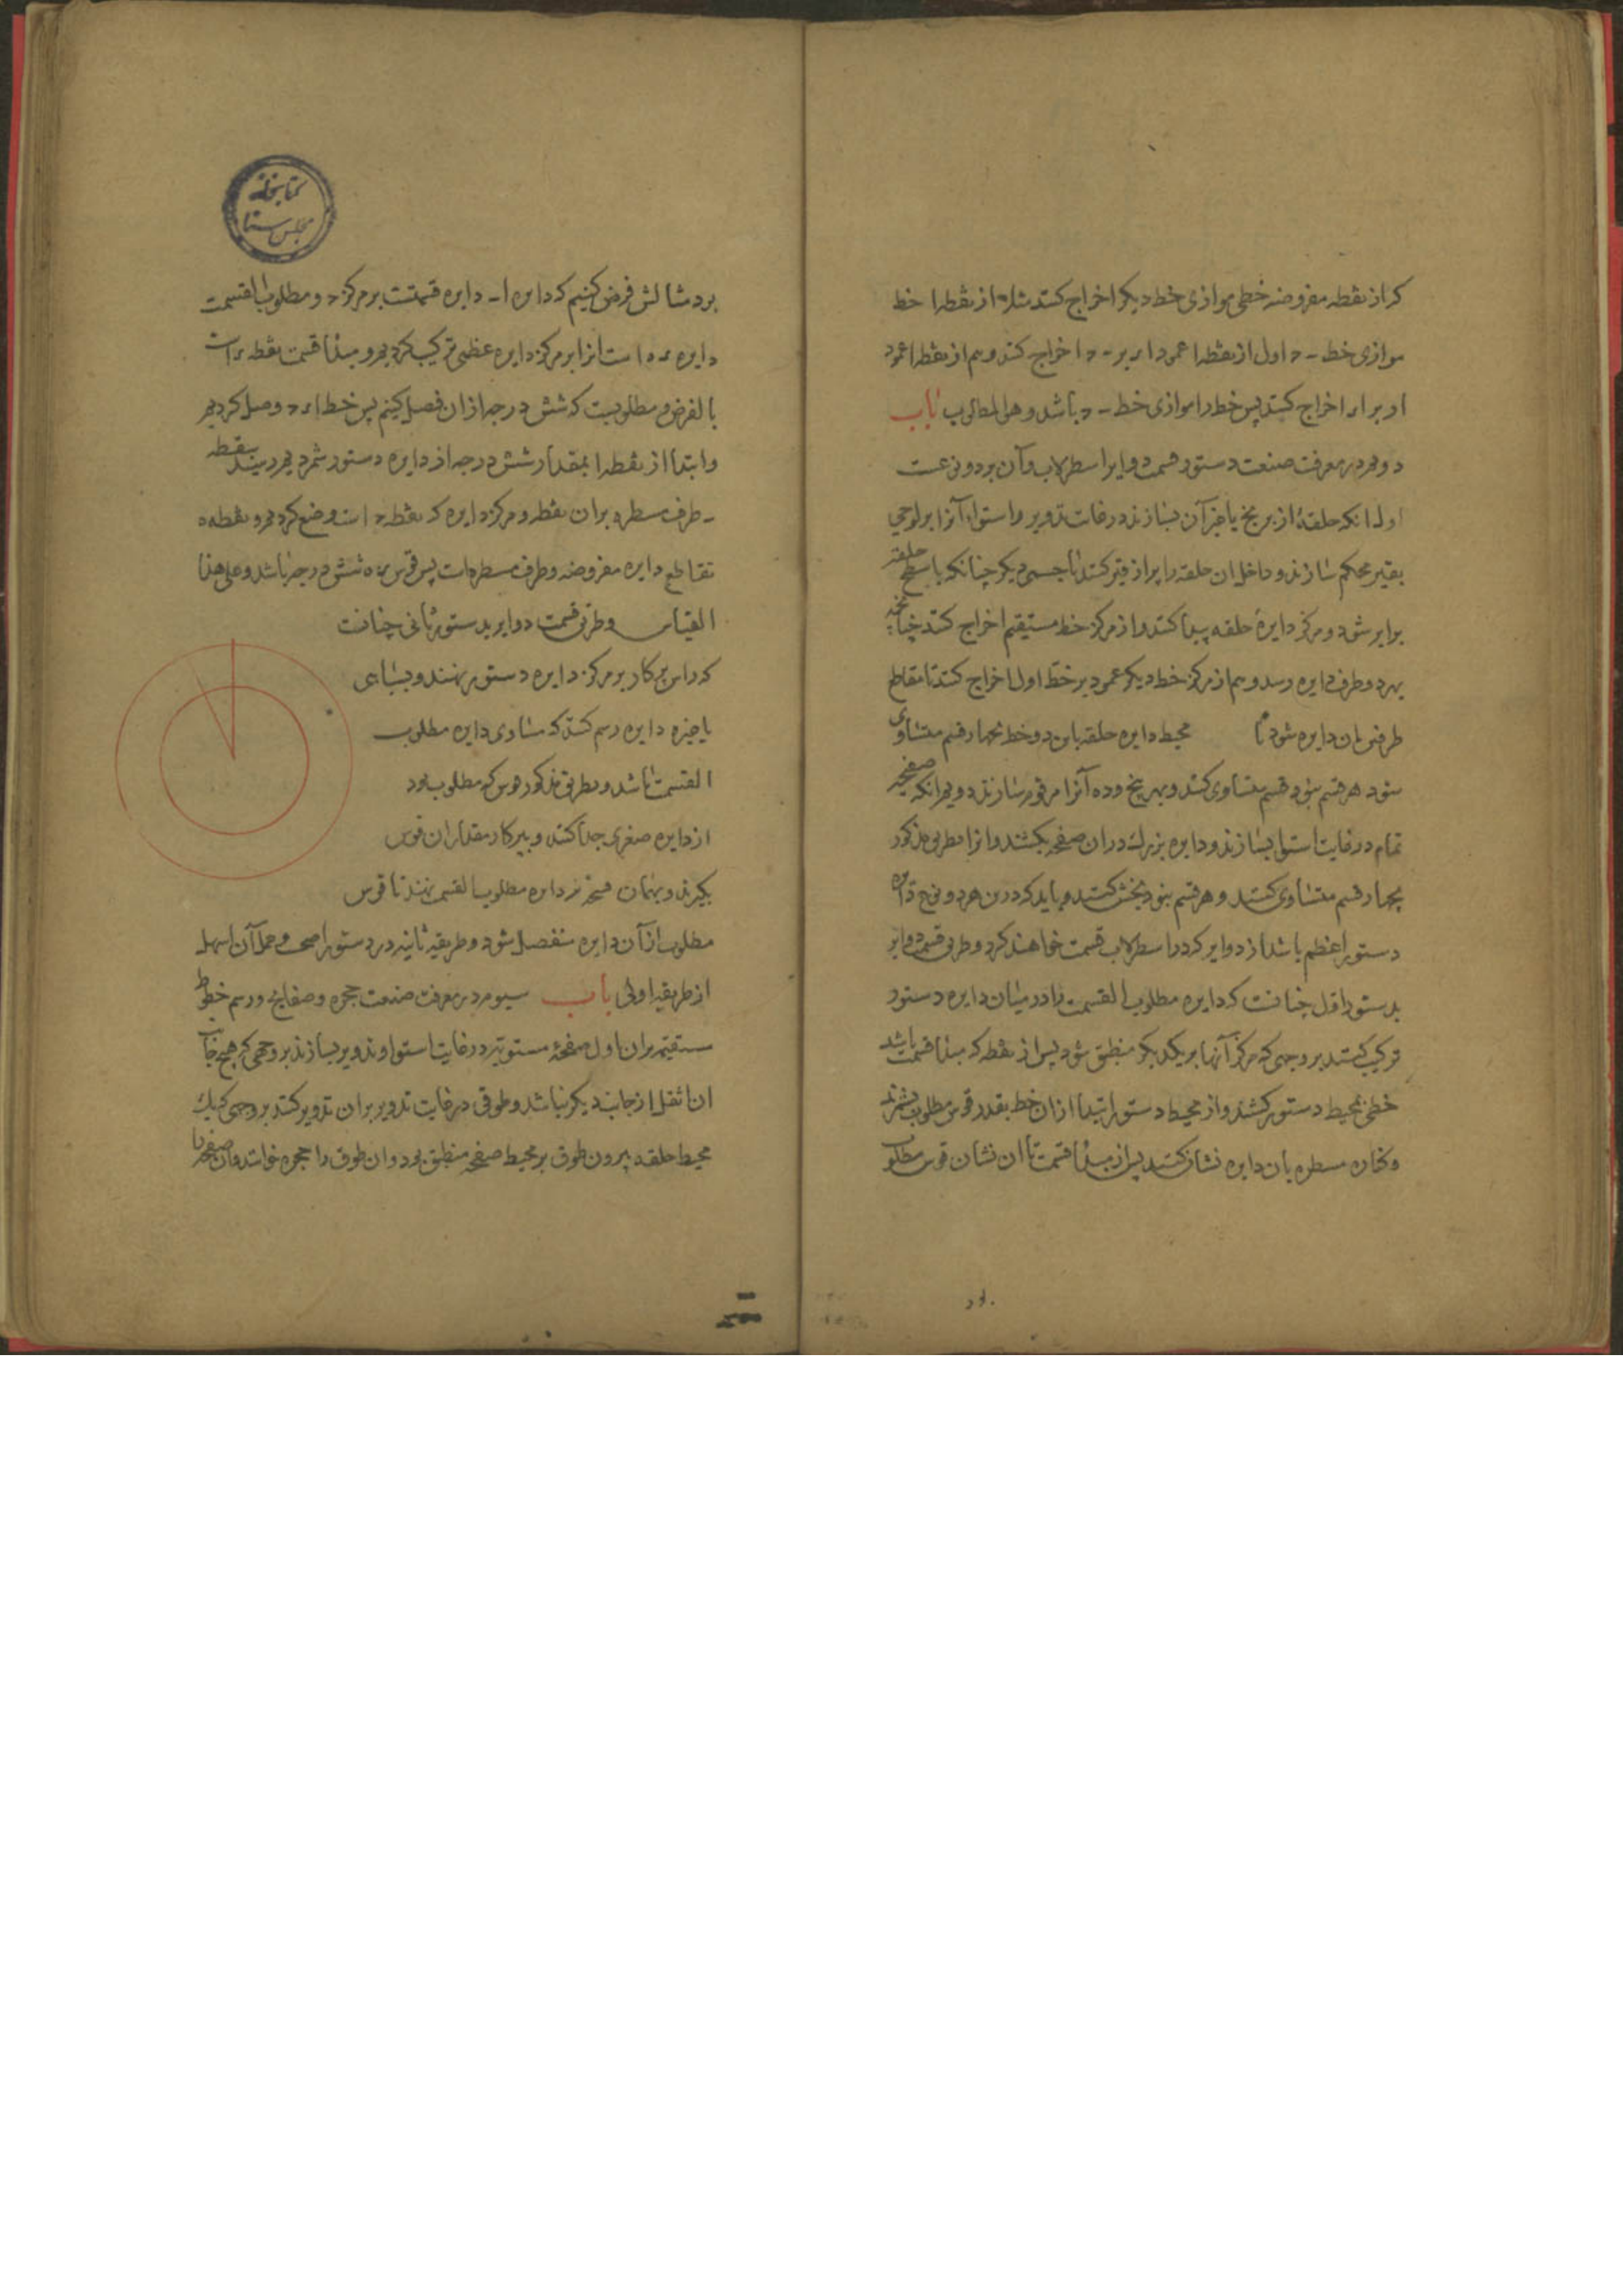 که از نقطه مفروضه خطی موازی خط دیکر اخراج کنند مثلا از نقطه ا خط
موازی خط ـ اول از نقطه ا عمود ا بر ـ اخراج کند و هم از نقطه ا عمود
ا بر ا اخراج کنند پس خط موازی خط ـ باشد و هو المطلوب باب
دویم در معرفت صنعت دستور قسمت دوایر اسطرلاب و آن بر دو نوعست
اول انکه حلقهٔ از برنج یا جز آن بسازند در غایت تدویر و استوا و آنرا بر لوحی
بقیر محکم سازند و داخل ان حلقه را پر از قیر کنند یا جسمی دیکر چنانکه با سطح حلقه
برابر شود و مرکز دایرهٔ حلقه پیدا کنند و از مرکز خط مستقیم اخراج کنند چنانچه
بهر دو طرف دایره رسد و هم از مرکز خط دیکر عمود بر خط اول اخراج کنند تا مقاطع
طرفین ان دایره شود تا محیط دایره حلقه باین دو خط بچهار قسم متساوی
شود هر قسم بنود قسم متساوی کنند و بهر پنج و ده آنرا مرقوم سازند دویم انکه صفحهٔ
تمام در غایت استوا بسازند و دایره بزرک در ان صفحه بکشند و انرا بطریق مذکور
بچهار قسم متساوی کنند و هر قسم بنود بخش کنند و باید که درین هر دو نوع دایره
دستور اعظم باشد از دوایر که در اسطرلاب قسمت خواهند کرد و طریق قسمت دوایر
بدستور اول چنانست که دایره مطلوب القسمت را در میان دایره دستور
ترکیب کنند بر وجهی که مرکز آنها بر یکدیکر منطبق شود پس از نقطه که مبدا قسمت باشد
خطی بمحیط دستور کشند و از محیط دستور ابتدا از ان خط بقدر قوس مطلوب بشمرند
و بکناره مسطره بان دایره نشان کنند پس از مبدا قسمت تا ان نشان قوس مطلوب
بود
کتابخانه
مجلس سنا
بود مثالش فرض کنیم که دایره ا ـ دایره قسمتست بر مرکز و مطلوب القسمت
دایره است انرا بر مرکز دایره عظمی ترکیب کردیم و مبدا قسمت نقطه است
بالفرض و مطلوبست که شش درجه از ان فصل کنیم پس خط وصل کردیم
و ابتدا از نقطه ا بمقدار شش درجه از دایره دستور شمردیم رسید بنقطه
ـ طرف مسطره بران نقطه و مرکز دایره که نقطه است وضع کردیم و نقطه ه
تقاطع دایره مفروضه و طرف مسطره است پس قوس شش درجه باشد و علی هذا
القیاس و طریق قسمت دوایر بدستور ثانی چنانست
که راس پرکار بر مرکز دایره دستور نهند و بشاهی
یا جزه دایره رسم کنند که مساوی دایره مطلوب
القسمت باشد و بطریق مذکور قوس که مطلوب بود
از دایره صغری جدا کنند و بپرکار مقدار ان قوس
بکیرند و بهمان فتحه بر دایره مطلوب القسم نهند تا قوس
مطلوب از آن دایره منفصل شود و طریقه ثانیه در دستور اصح و عمل آن اسهل
از طریقه اولی باب سیوم در معرفت صنعت حجره و صفایح و رسم خطوط
مستقیم بران اول صفحهٔ مستویه در غایت استوا و تدویر بسازند بر وجهی که هیچ جانب
ان اثقل از جانب دیکر نباشد و طوقی در غایت تدویر بران تدویر کنند بر وجهی که یک
محیط حلقه بیرون طوق بر محیط صفحه منطبق بود و ان طوق را حجره خوانند و ان صفحه را